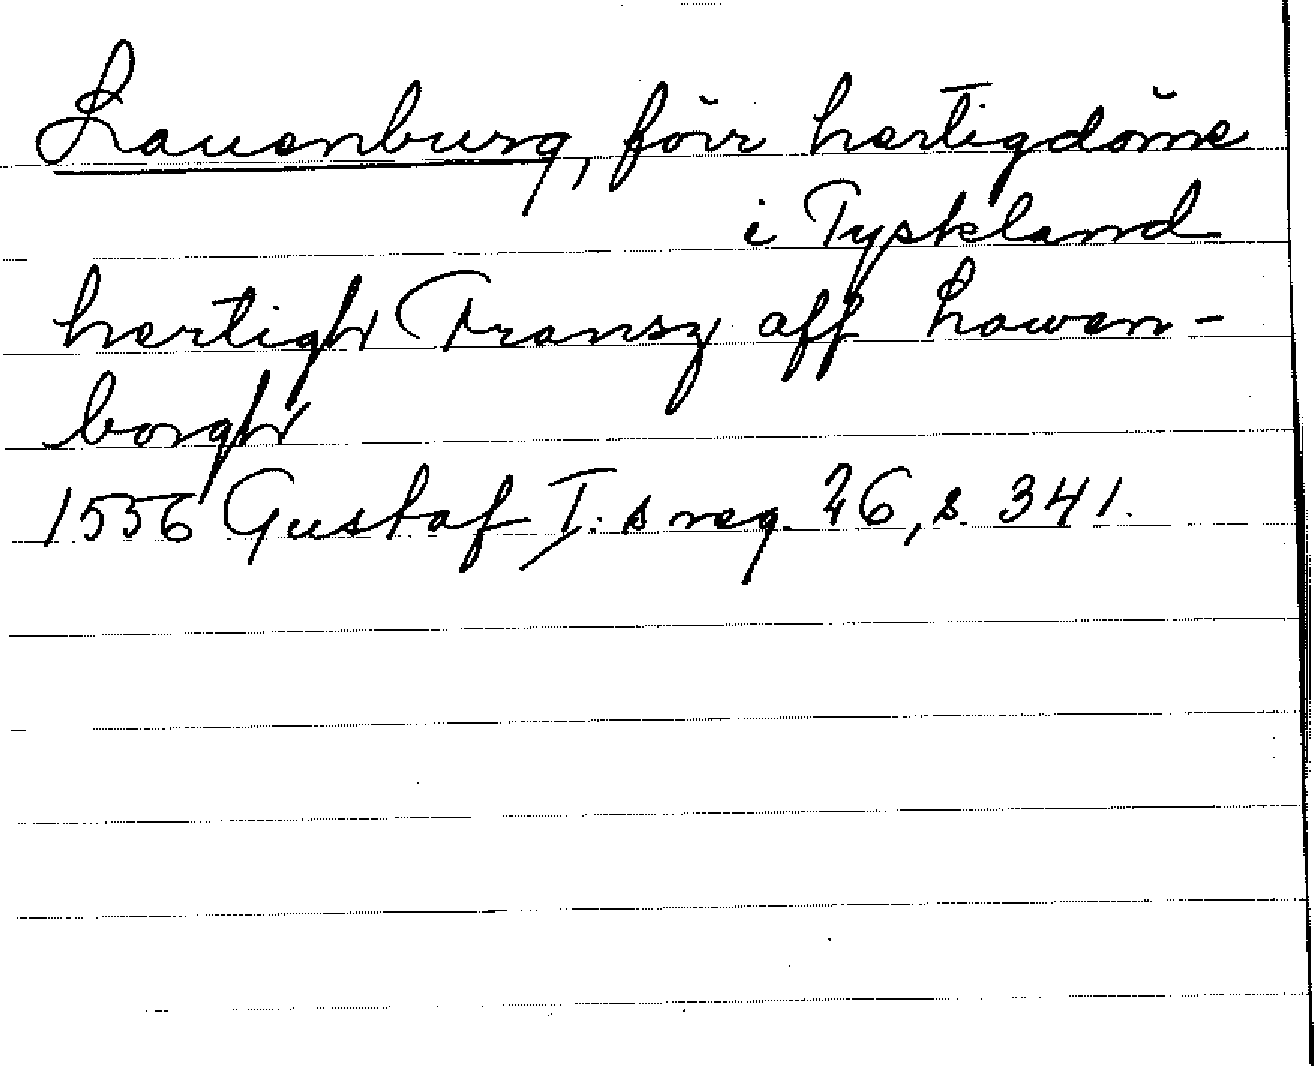 Lauenburg, förr hertigdöme
i Tyskland
hertigh Fransz aff Lowen-
borgh
1556 Gustaf I:s reg. 26, s. 341.